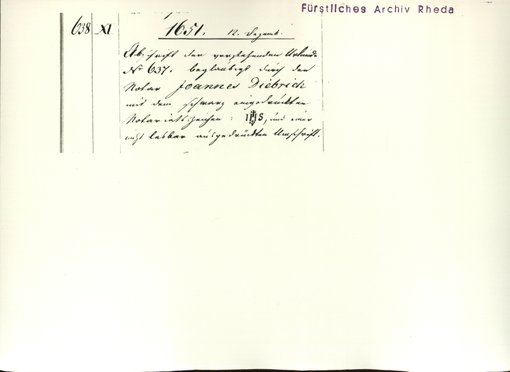 Fürstliches Archiv Rheda
638 XI 1651. 12. Dezemb.
Abschrift der vorstehenden Urkunde
No 637. beglaubigt durch den
Notar Joannes Diebrich
mit dem schwarz eingedrückten
Notariatszeichen: IHS, und einer
nicht lesbar ausgedrückten Umschrift.